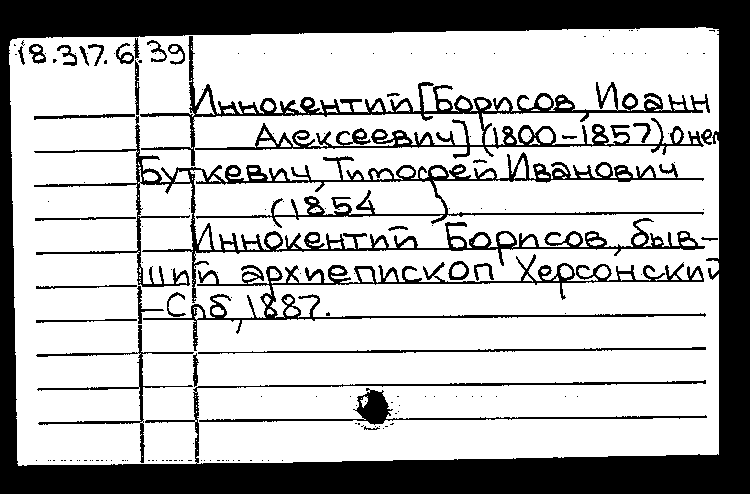 18.317.6.39
Иннокентий [Борисов, Иоанн
Алексеевич] (1800-1857), о нем
Буткевич, Тимофей Иванович
(1854 ).
Иннокентий Борисов, быв-
ший архиепископ Херсонский
-Спб, 1887.